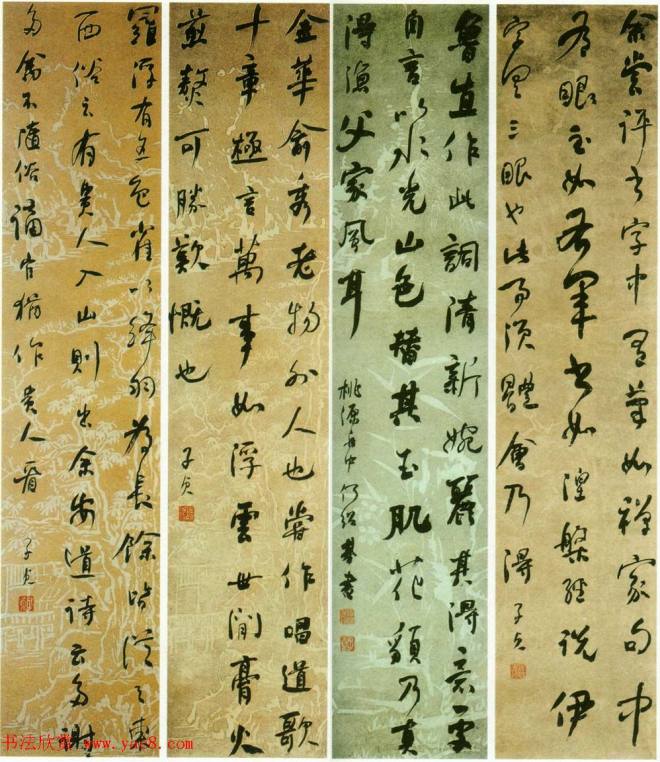 余嘗評書字中有筆如禪家句中
有眼至如右軍書如涅槃經說伊
字具三眼也此事須體會乃得 子貞
魯直作此詞清新婉麗其得意處
自言以水光山色替其玉肌花貌乃真
得漁父家風耳 桃源舟中何紹基書
金華俞秀老物外人也嘗作唱道歌
十章極言萬事如浮雲世間膏火
煎熬可勝歎慨也 子貞
羅浮有五色雀以絳羽為長餘皆從之東
西俗云有貴人入山則出余安道詩云多謝
多禽不隨俗謂吾猶作貴人看 子貞
书法欣赏 www.yac8.com